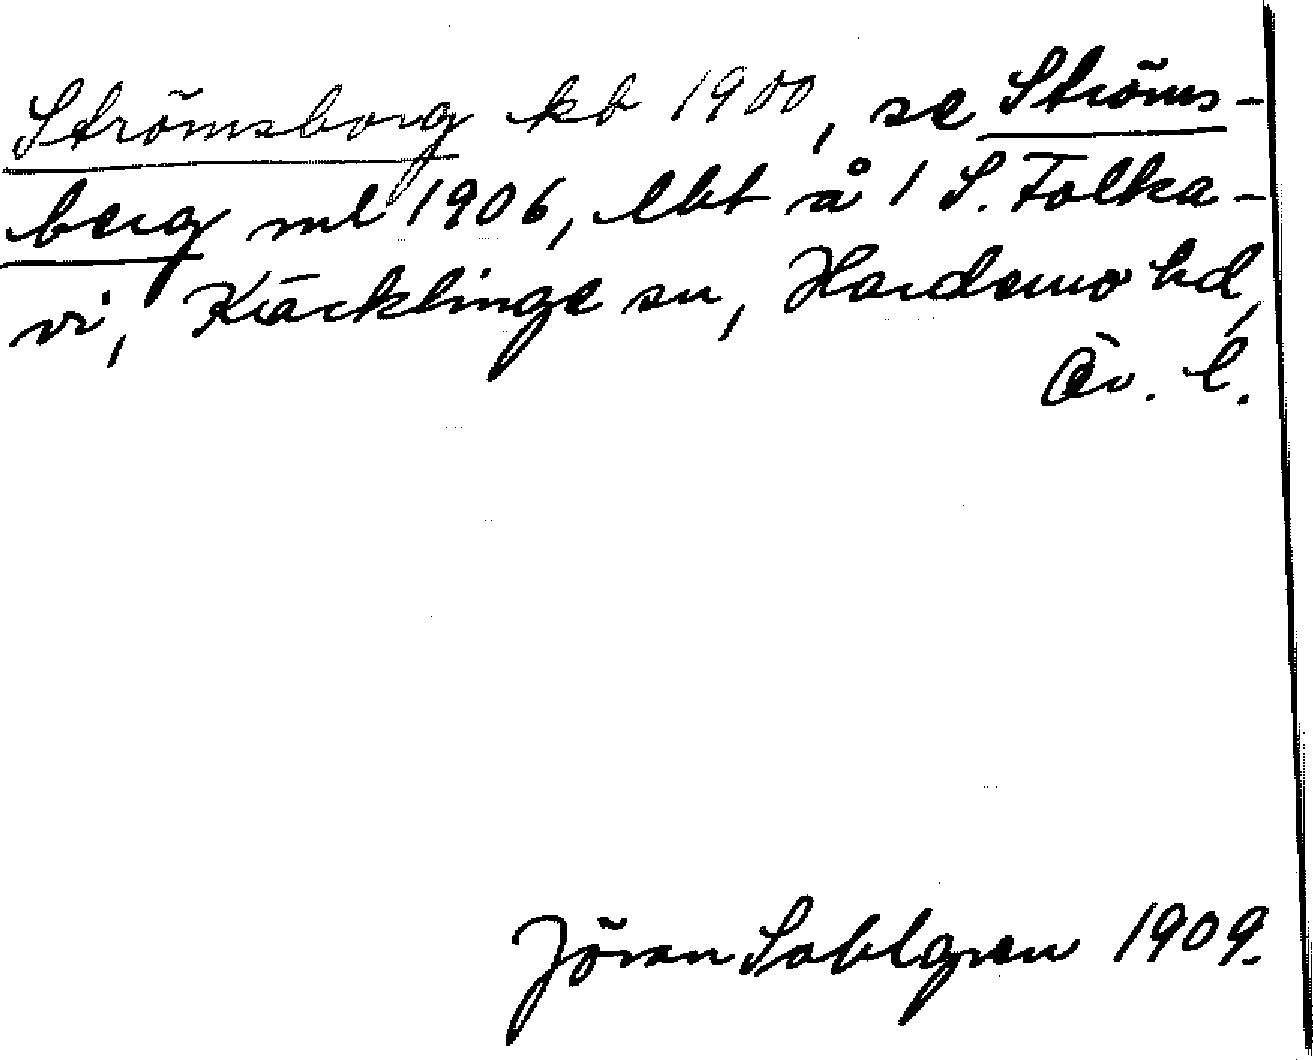 Strömsborg kb 1900, se Ströms-
berg ml 1906, lht å 1 S. Folka-
vi, Kräcklinge sn, Hardemo hd,
Ör. l.
Jöran Sahlgren 1909.